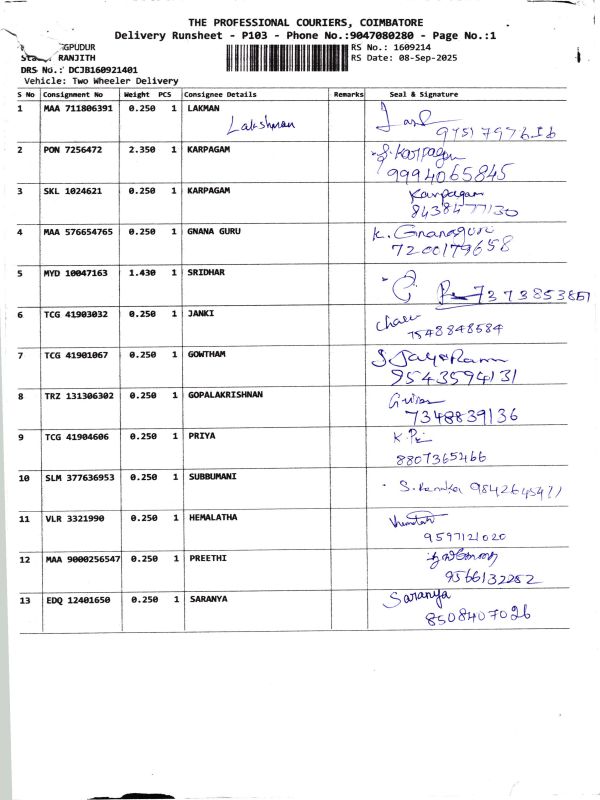 THE PROFESSIONAL COURIERS, COIMBATORE
Delivery Runsheet - P103 - Phone No.:9047080280 - Page No.:1
GPUDUR
RS No.: 1609214
RANJITH
RS Date: 08-Sep-2025
DRS No.: DCJB160921401
Vehicle: Two Wheeler Delivery
S No Consignment No Weight PCS Consignee Details Remarks Seal & Signature
1 MAA 711806391 0.250 1 LAKMAN
Lakshman
2 PON 7256472 2.350 1 KARPAGAM
S. Karpagam
9994065845
3 SKL 1024621 0.250 1 KARPAGAM
Karpagam
8438477130
4 MAA 576654765 0.250 1 GNANA GURU
K. Gnanaguru
7200179658
5 MYD 10047163 1.430 1 SRIDHAR
6 TCG 41903032 0.250 1 JANKI
7548848584
7 TCG 41901067 0.250 1 GOWTHAM
9543594131
8 TRZ 131306302 0.250 1 GOPALAKRISHNAN
7348839136
9 TCG 41904606 0.250 1 PRIYA
8807365466
10 SLM 377636953 0.250 1 SUBBUMANI
11 VLR 3321990 0.250 1 HEMALATHA
9597121020
12 MAA 9000256547 0.250 1 PREETHI
9566132252
13 EDQ 12401650 0.250 1 SARANYA
Saranya
8508407026